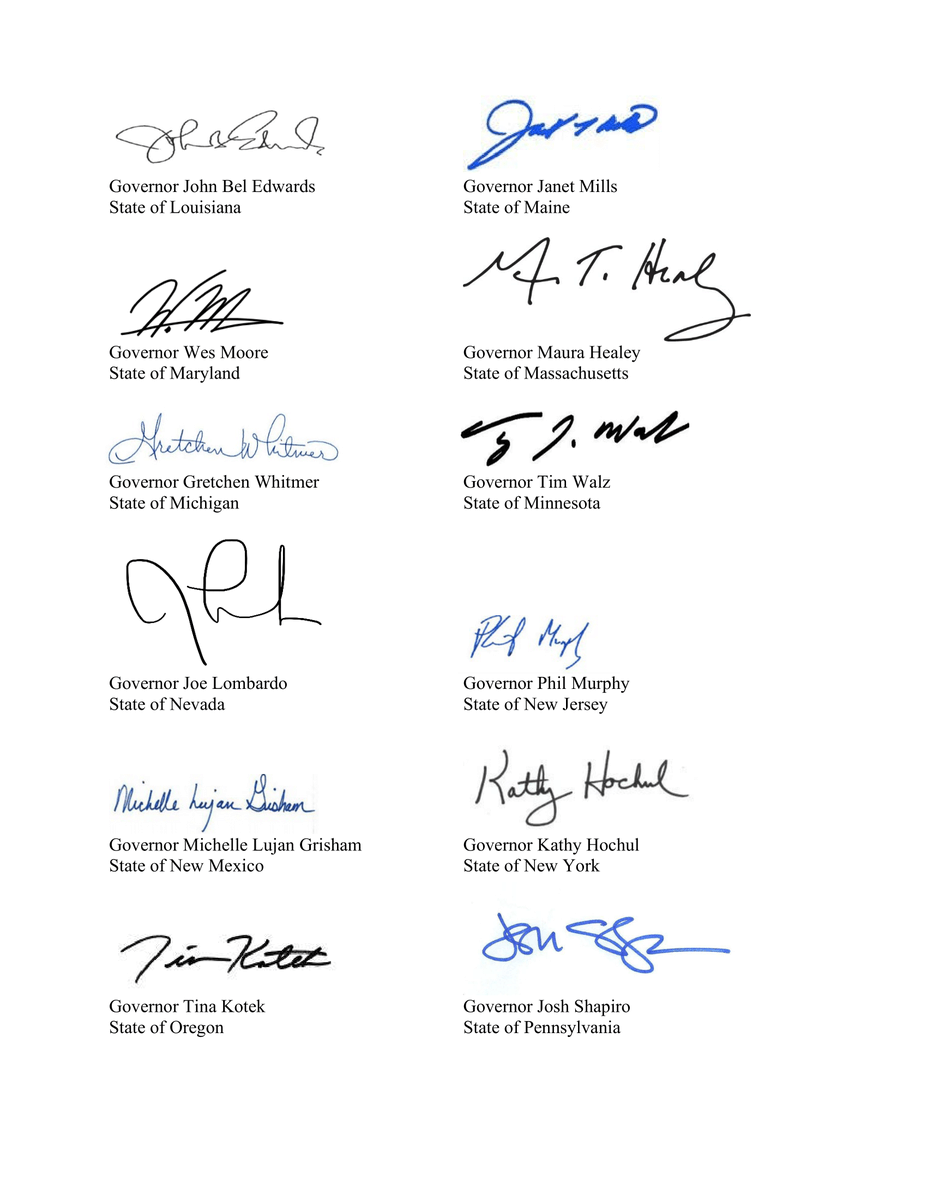 John Bel Edwards
Governor John Bel Edwards
State of Louisiana
Governor Janet Mills
State of Maine
W. M
Governor Wes Moore
State of Maryland
M T. Healey
Governor Maura Healey
State of Massachusetts
Gretchen Whitmer
Governor Gretchen Whitmer
State of Michigan
J. Walz
Governor Tim Walz
State of Minnesota
Governor Joe Lombardo
State of Nevada
Phil Murphy
Governor Phil Murphy
State of New Jersey
Michelle Lujan Grisham
Governor Michelle Lujan Grisham
State of New Mexico
Kathy Hochul
Governor Kathy Hochul
State of New York
Tina Kotek
Governor Tina Kotek
State of Oregon
Josh
Governor Josh Shapiro
State of Pennsylvania